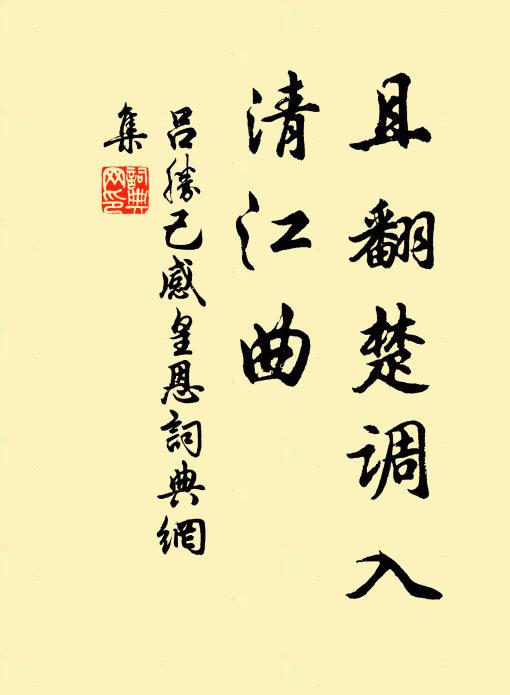 且翻楚调入
清江曲
吕勝己感皇恩詞典網
集
詞典
网印